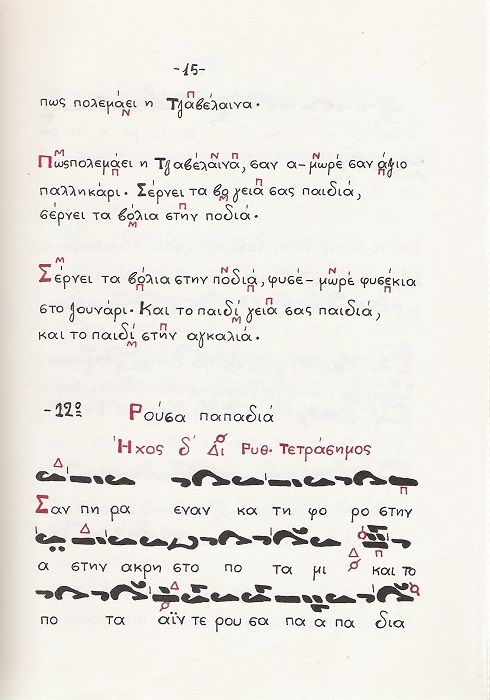 -15-
πως πολεμάει η Τζαβέλαινα.
Πωςπολεμάει η Τζαβέλαινα, σαν α-μωρέ σαν άξιο
παλληκάρι. Σέρνει τα βο γεια σας παιδιά,
σέρνει τα βόλια στην ποδιά.
Σέρνει τα βόλια στην ποδιά, φυσέ-μωρέ φυσέκια
στο ζουνάρι. Και το παιδί γεια σας παιδιά,
και το παιδί στην αγκαλιά.
-12º Ρούσα παπαδιά
Ήχος δ΄ Δι Ρυθ. Τετράσημος
Σαν πη ρα εναν κα τη φο ρο στην
α στην ακρη στο πο τα μι και το
πο τα αϊν τε ρου σα πα α πα δια